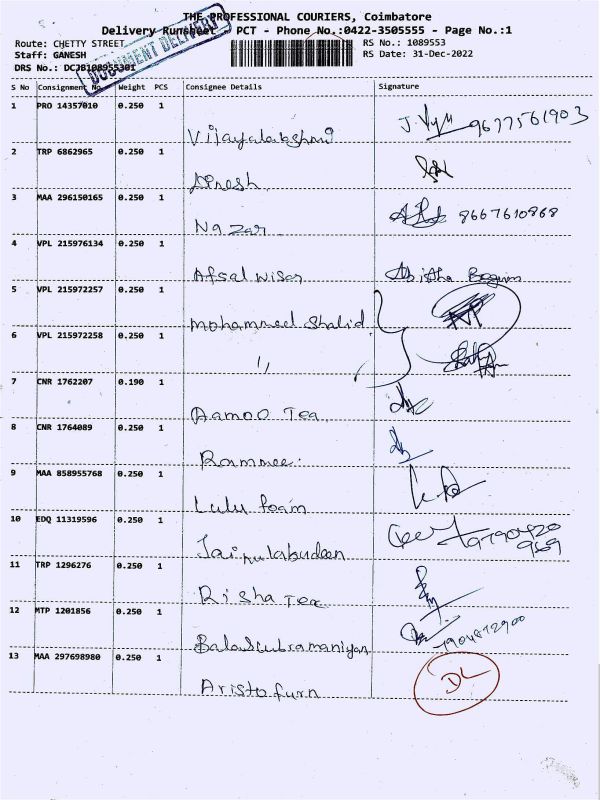 THE PROFESSIONAL COURIERS, Coimbatore
Delivery Runsheet PCT - Phone No.:0422-3505555 - Page No.:1
DOCUMENT DELIVERY
Route: CHETTY STREET RS No.: 1089553
Staff: GANESH RS Date: 31-Dec-2022
DRS No.: DCJB108955301
S No Consignment No. Weight PCS Consignee Details Signature
1 PRO 14357010 0.250 1 Vijayalakshmi 9677561903
2 TRP 6862965 0.250 1 Dinesh
3 MAA 296150165 0.250 1 Nazar 8667610868
4 VPL 215976134 0.250 1 Afsal Begum
5 VPL 215972257 0.250 1 Mohammed Shalid
6 VPL 215972258 0.250 1 "
7 CNR 1762207 0.190 1 Aamoo Tea
8 CNR 1764089 0.250 1
9 MAA 858955768 0.250 1 Lulu foam
10 EDQ 11319596 0.250 1 Jainulabudeen 9790420
969
11 TRP 1296276 0.250 1 Risha Tex
12 MTP 1201856 0.250 1 Balasubramaniyan
13 MAA 297698980 0.250 1 Aristo furn DL